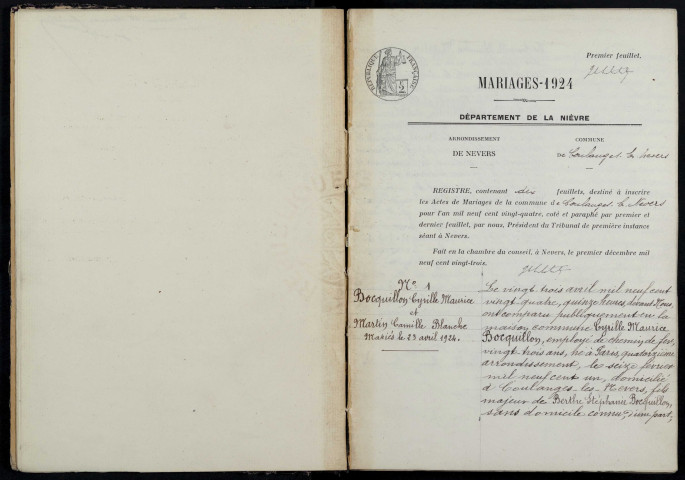 Premier feuillet.
RÉPUBLIQUE FRANÇAISE
2
MARIAGES-1924
DÉPARTEMENT DE LA NIÈVRE
ARRONDISSEMENT
DE NEVERS
COMMUNE
DE Coulanges les Nevers
REGISTRE, contenant dix feuillets, destiné à inscrire
les Actes de Mariages de la commune de Coulanges les Nevers
pour l'an mil neuf cent vingt-quatre, coté et paraphé par premier et
dernier feuillet, par nous, Président du Tribunal de première instance
séant à Nevers.
Fait en la chambre du conseil, à Nevers, le premier décembre mil
neuf cent vingt-trois.
No 1
Bocquillon Cyrille Maurice
et
Martin Camille Blanche
Mariés le 23 avril 1924.
Le vingt trois avril mil neuf cent
vingt quatre, quinze heures, devant Nous
ont comparu publiquement en la
maison commune Cyrille Maurice
Bocquillon, employé de chemin de fer,
vingt trois ans, né à Paris, quatorzième
arrondissement, le seize février
mil neuf cent un, domicilié
à Coulanges-les-Nevers, fils
majeur de Berthe Stéphanie Bocquillon,
sans domicile connu, d'une part,